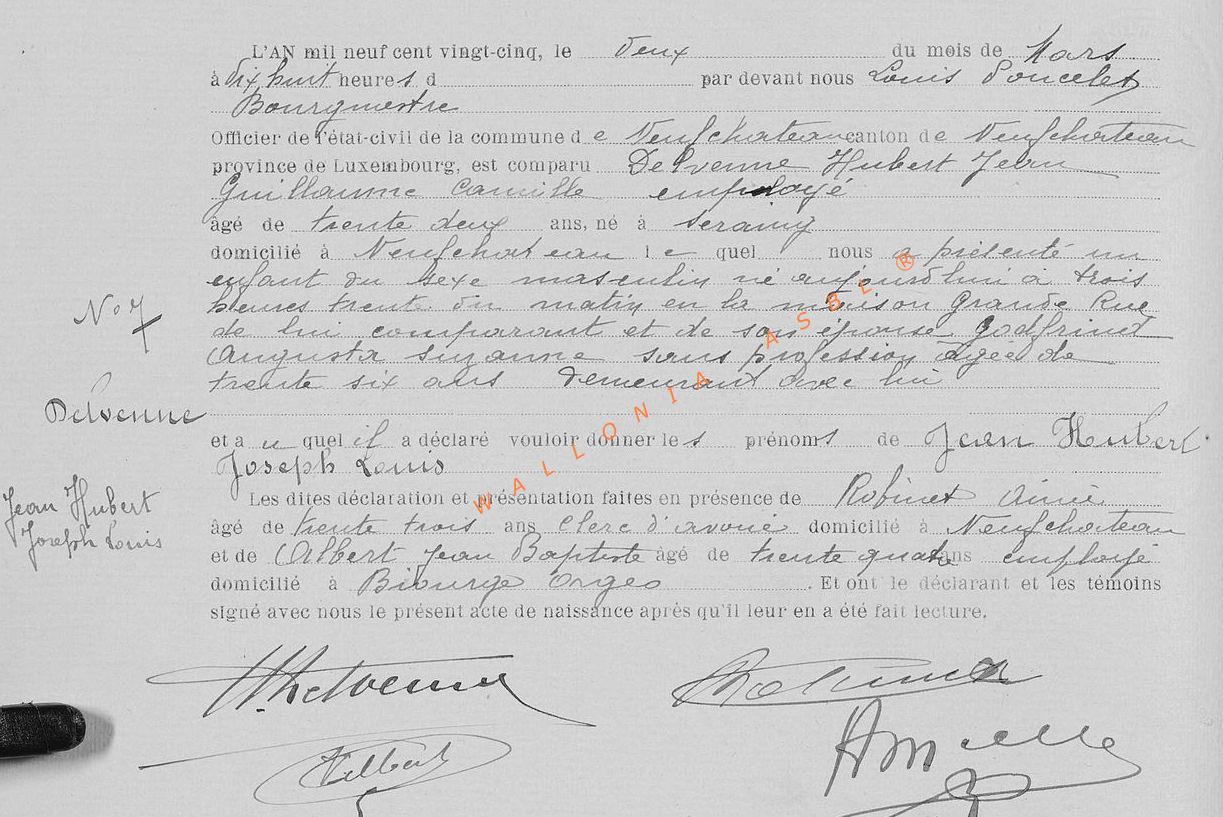 L'AN mil neuf cent vingt-cinq, le deux du mois de Mars
à dix huit heures d par devant nous Louis Poncelet
Bourgmestre
Officier de l'état-civil de la commune de Neufchateau canton de Neufchateau
province de Luxembourg, est comparu Delvenne Hubert Jean
Guillaume Camille employé
âgé de trente deux ans, né à Seraing
domicilié à Neufchateau lequel nous a présenté un
enfant du sexe masculin né aujourd'hui à trois
heures trente du matin en la maison Grande Rue
No 7
de lui comparant et de son épouse Godfrinet
Augusta Suzanne sans profession âgée de
trente six ans demeurant avec lui
Delvenne
et au quel il a déclaré vouloir donner les prénoms de Jean Hubert
Joseph Louis
Jean Hubert
Joseph Louis
Les dites déclaration et présentation faites en présence de Robinet Aimé
âgé de trente trois ans clerc d'avoué domicilié à Neufchateau
et de Albert Jean Baptiste âgé de trente quatre ans employé
domicilié à Biourge Orgeo. Et ont le déclarant et les témoins
signé avec nous le présent acte de naissance après qu'il leur en a été fait lecture.
H. Delvenne
Albert
WALLONIA ASBL ®